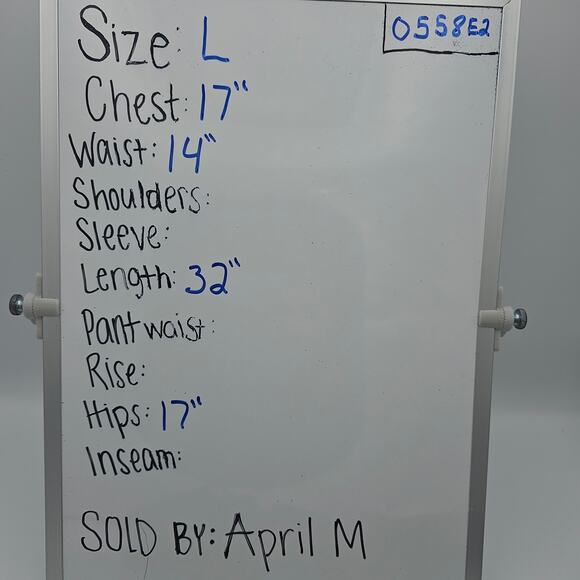 Size: L
0558E2
Chest: 17"
Waist: 14"
Shoulders:
Sleeve:
Length: 32"
Pant waist:
Rise:
Hips: 17"
Inseam:
SOLD BY: April M